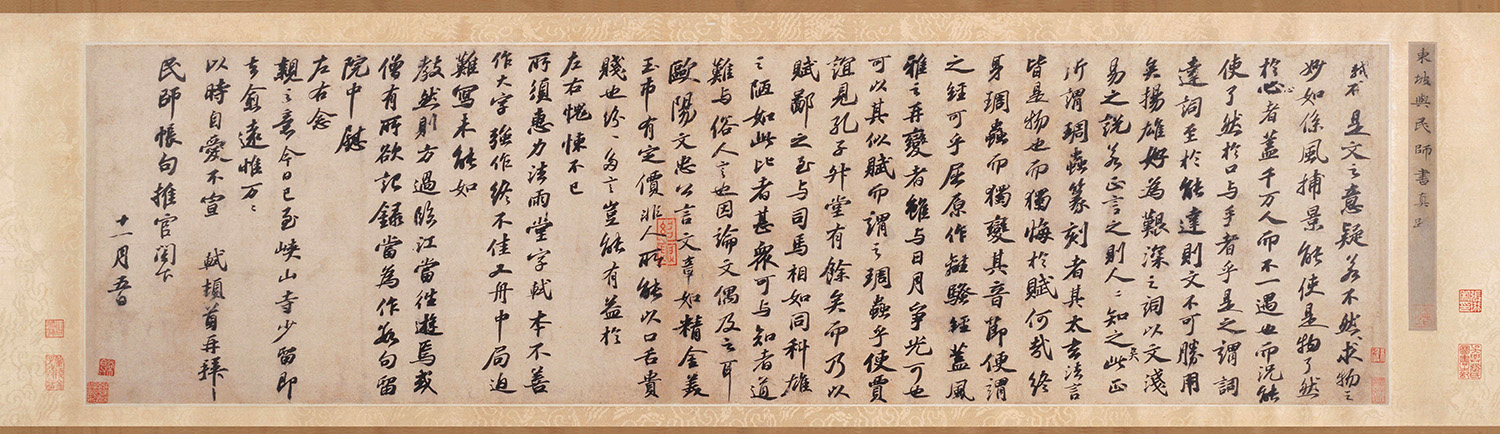 東坡與民師書真迹
是文之意疑若不然求物之
妙如係風捕景能使是物了然
於心者蓋千万人而不一遇也而況能
使了然於口与手者乎是之謂詞
達詞至於能達則文不可勝用
矣揚雄好為艱深之詞以文淺
易之說若正言之則人〻知之矣此正
所謂琱蟲篆刻者其太玄法言
皆是物也而獨悔於賦何哉終
身琱蟲而獨變其音節便謂
之經可乎屈原作離騷經蓋風
雅之再變者雖与日月爭光可也
可以其似賦而謂之琱蟲乎使賈
誼見孔子升堂有餘矣而乃以
賦鄙之至与司馬相如同科雄
之陋如此比者甚眾可与知者道
難与俗人言也因論文偶及之耳
歐陽文忠公言文章如精金美
玉市有定價非人所能以口舌貴
賤也紛〻多言豈能有益於
左右愧悚不已
所須惠力法雨堂字軾本不善
作大字強作終不佳又舟中局迫
難寫未能如
教然則方過臨江當往遊焉或
僧有所欲記錄當為作數句留
院中慰
左右念
親之意今日已至峽山寺少留即
去愈遠惟万〻
以時自愛不宣 軾頓首再拜
民師帳句推官閣下
十一月五日